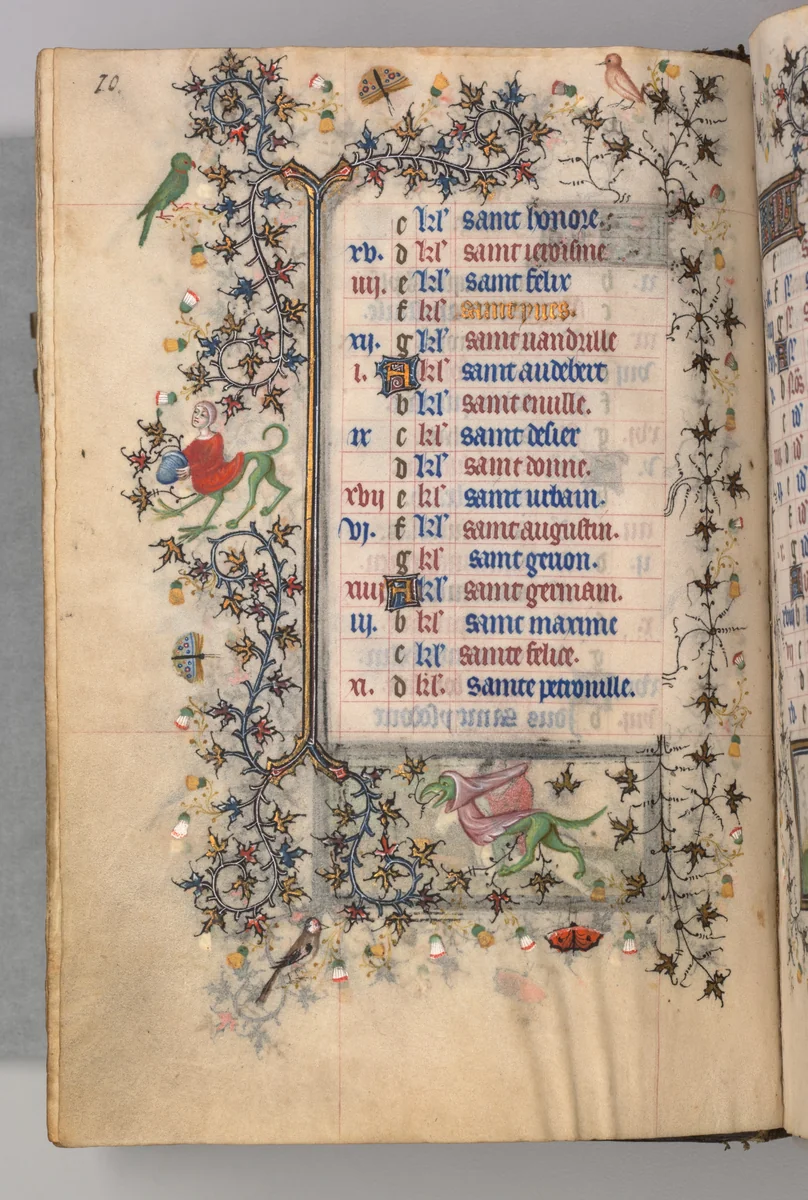 10.
c kl' saint honore.
xv. d kl' saint
iiii. e kl' saint felix
f kl' saint yues.
xij. g kl' saint uandrille
i. A kl' saint audebert
b kl' saint
ix c kl' saint desier
d kl' saint donne.
xvij e kl' saint urbain.
vj. f kl' saint augustin.
g kl' saint geuon.
xiiij A kl' saint germain.
iij. b kl' saint maxime
c kl' sainte felice.
xi. d kl'. sainte petronille.